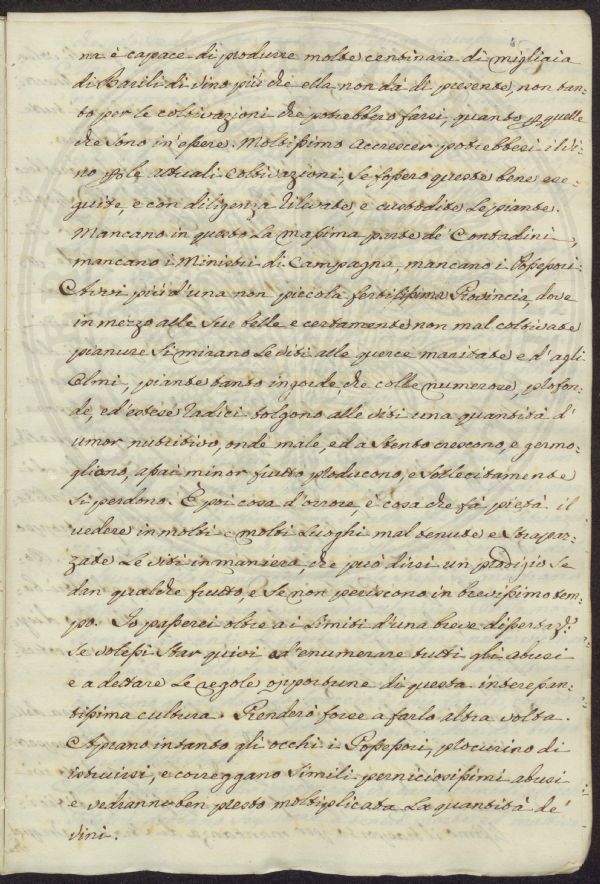 na è capace di produrre molte centinaia di migliaia
di Barili di vino più che ella non dà di presente, non tan-
to per le coltivazioni che potrebbero farsi, quanto p quelle
che sono in essere. Moltissimo accrescer potrebbesi il Vi-
no p le attuali Coltivazioni, se fossero queste bene ese-
guite, e con diligenza rilevate, e custodite le piante.
Mancano in questo la massima parte de' Contadini,
mancano i Ministri di Campagna, mancano i Possessori.
Avvi più d'una non piccola fertilissima Provincia, dove
in mezzo alle sue belle e certamente non mal coltivate
pianure si mirano le viti alle querce maritate e d'agli
Olmi, piante tanto ingorde, che colle numerose, profon-
de, ed estese radici tolgono alle viti una quantità d'
umor nutritivo, onde male, ed a stento crescono, e germo-
gliano, assai minor frutto producono, e sollecitamente
si perdono. È poi cosa d'orrore, è cosa che fà pietà il
vedere in molti e molti luoghi mal tenute e strapaz-
zate le viti in maniera, che può dirsi un prodigio se
dan qualche frutto, e se non periscono in brevissimo tem-
po. Io passerei oltre a i limiti d'una breve dissertaz.e
se volessi star quivi ad enumerare tutti gli abusi
e a dettare le regole opportune di questa interessan-
tissima cultura. Prenderò forse a farlo altra volta.
Aprano intanto gli occhi i Possessori, procurino di
istruirsi, e correggano simili perniciosissimi abusi
e vedranno ben presto moltiplicata la quantità de'
vini.